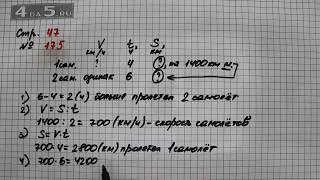 4 ga5.ru
Стр. 47
№ 175
V t, S,
км/ч ч км
1 сам. 4 ?, на 1400 км м.
2 сам. одинак 6 ?
1) 6-4=2(ч) больше пролетел 2 самолёт
2) V=S:t
1400:2=700(км/ч)-скорость самолётов
3) S=V·t
700·4=2800(км) пролетел 1 самолёт
4) 700·6=4200